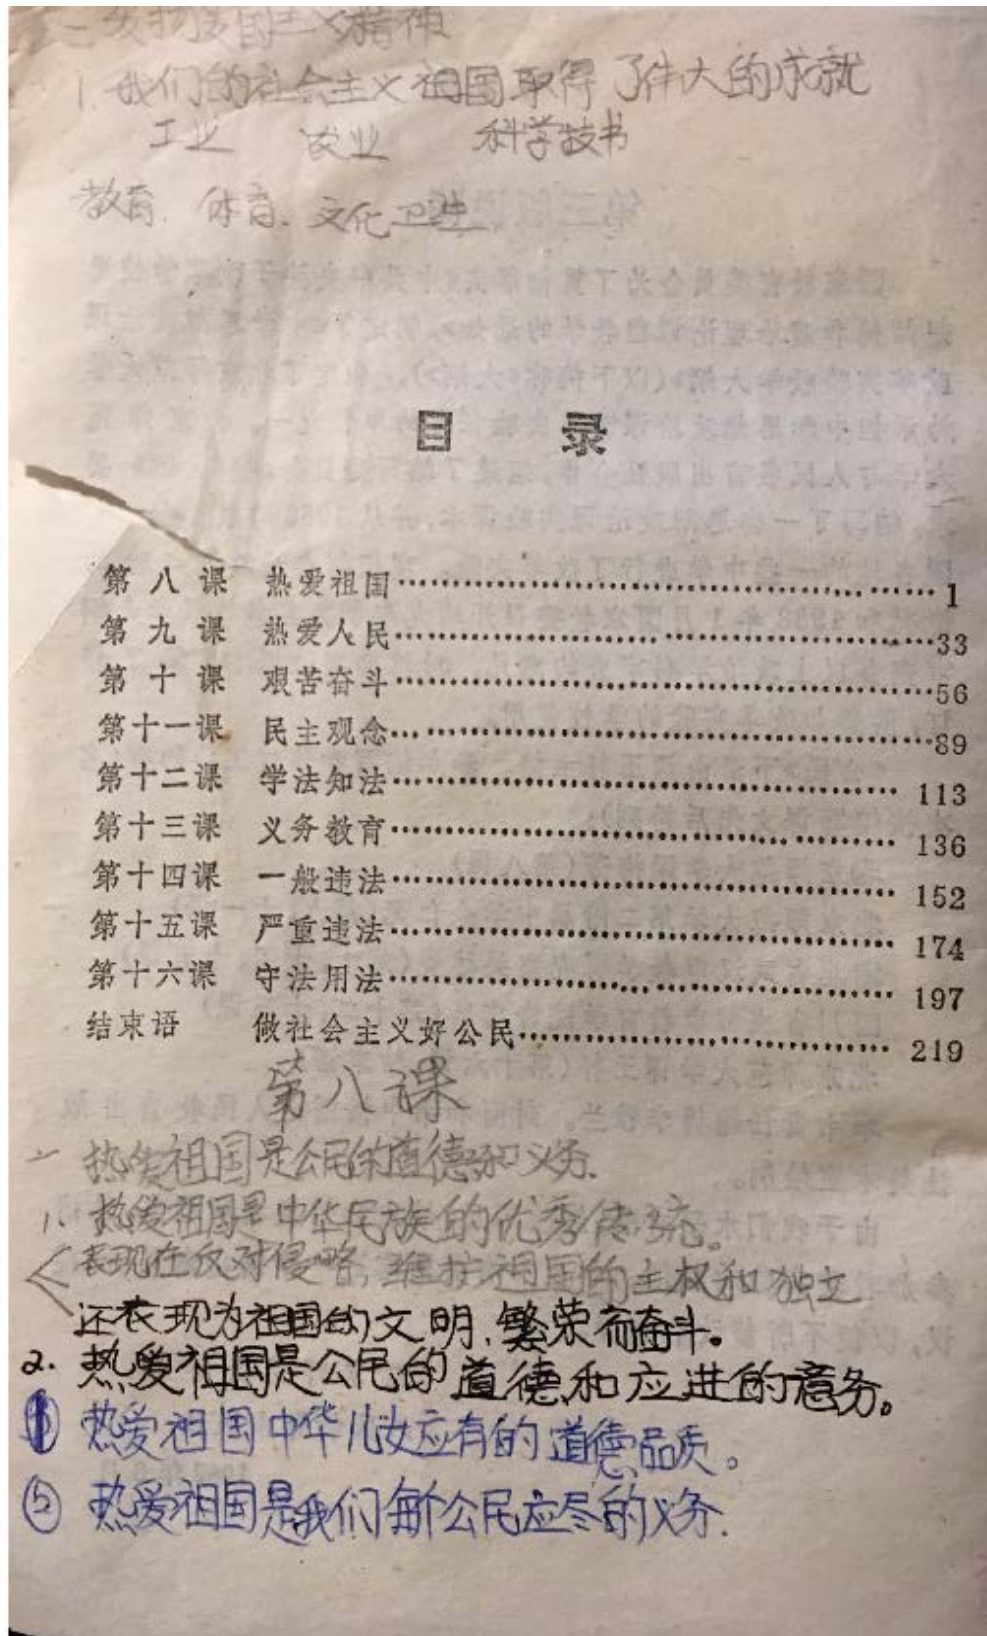 二 发扬爱国主义精神
1. 我们的社会主义祖国取得了伟大的成就
工业 农业 科学技书
教育、体育、文化卫生
目 录
第八课 热爱祖国……………………………1
第九课 热爱人民……………………………33
第十课 艰苦奋斗……………………………56
第十一课 民主观念……………………………89
第十二课 学法知法……………………………113
第十三课 义务教育……………………………136
第十四课 一般违法……………………………152
第十五课 严重违法……………………………174
第十六课 守法用法……………………………197
结束语 做社会主义好公民……………………219
第八课
一 热爱祖国是公民的道德和义务.
1. 热爱祖国是中华民族的优秀传统。
表现在反对侵略,维护祖国的主权和独立
还表现为祖国的文明,繁荣而奋斗。
2. 热爱祖国是公民的道德和应进的意务。
① 热爱祖国中华儿女应有的道德品质。
② 热爱祖国是我们每个公民应尽的义务.